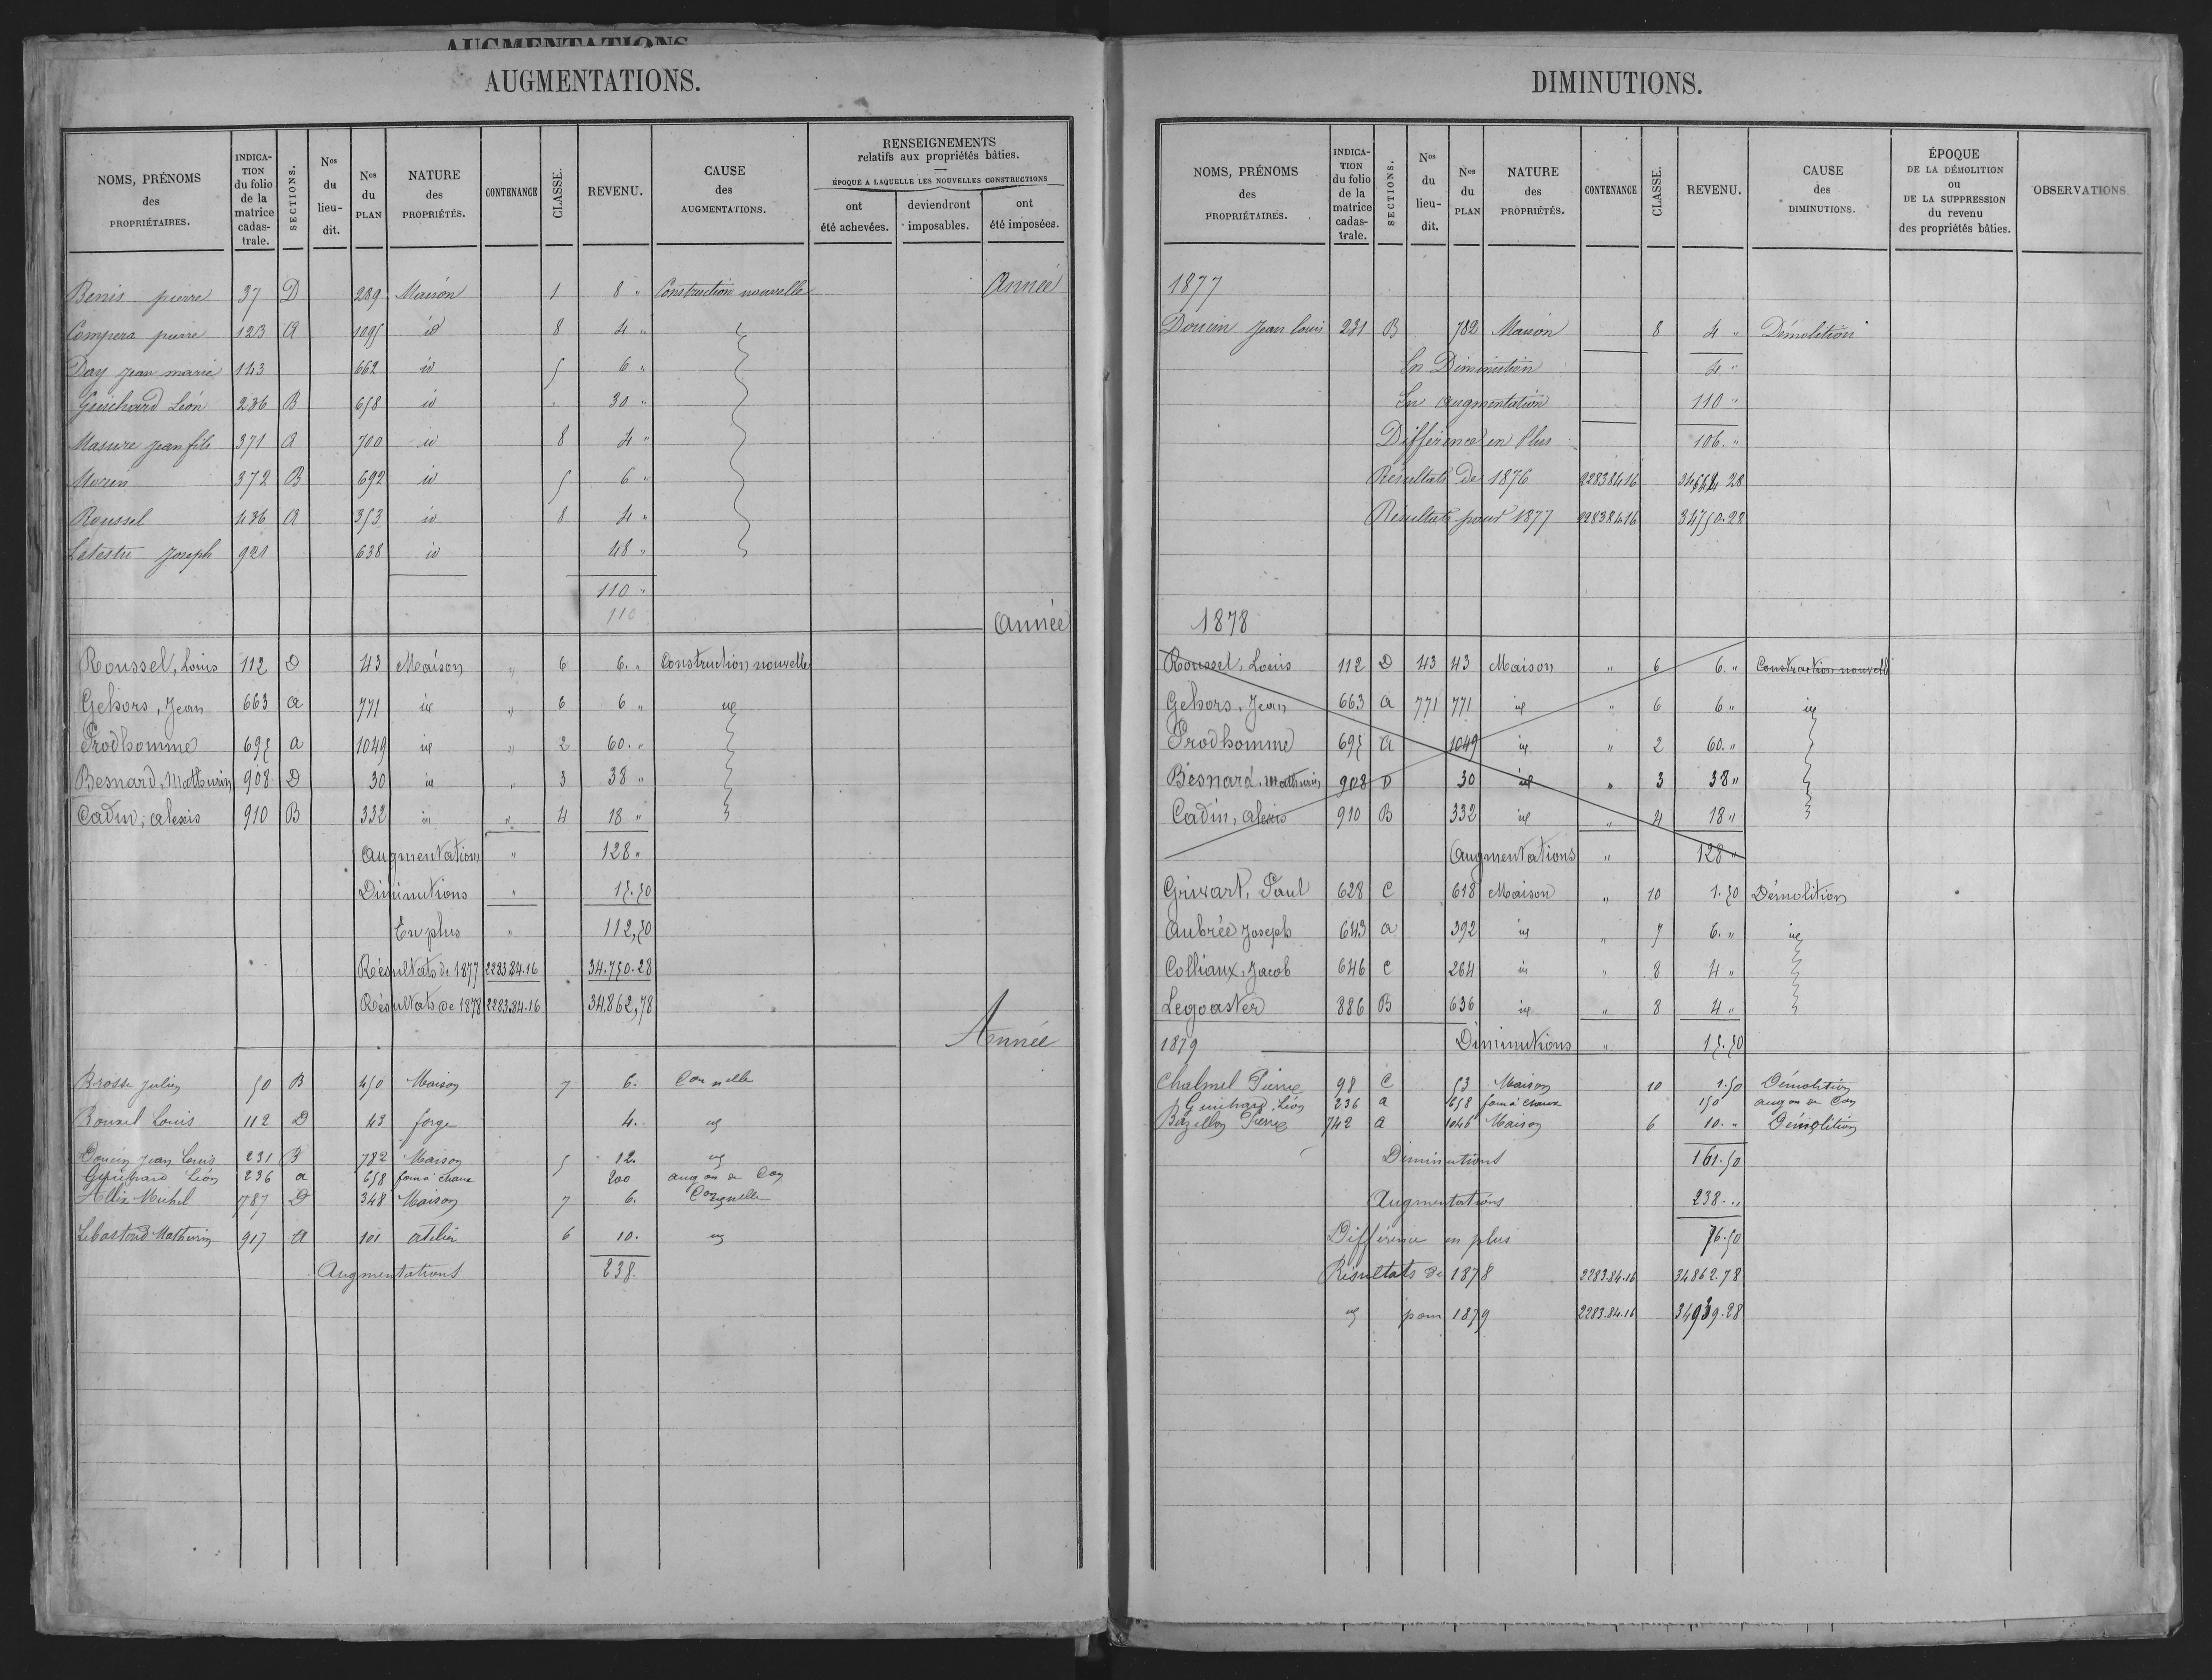 AUGMENTATIONS
AUGMENTATIONS.
NOMS, PRÉNOMS des PROPRIÉTAIRES. | INDICATION du folio de la matrice cadastrale. | SECTIONS. | Nos du lieu-dit. | Nos du PLAN | NATURE des PROPRIÉTÉS. | CONTENANCE | CLASSE. | REVENU. | CAUSE des AUGMENTATIONS. | RENSEIGNEMENTS relatifs aux propriétés bâties. — ÉPOQUE A LAQUELLE LES NOUVELLES CONSTRUCTIONS | ont été achevées. | deviendront imposables. | ont été imposées.
Année
Benis pierre 37 D 289 Maison 1 8 " Construction nouvelle
Compera pierre 123 A 1095 id 8 4 "
Day Jean marie 143 662 id 5 6 "
Guichard Léon 236 B 658 id 30 "
Masure Jean fils 371 A 700 id 8 4 "
Morin 372 B 692 id 5 6 "
Roussel 436 A 353 id 8 4 "
Letestu Joseph 921 638 id 48 "
110 "
110
Année
Roussel, Louis 112 D 43 Maison " 6 6. " Construction nouvelle
Gehors, Jean 663 a 771 id " 6 6 " id
Prodhomme 695 a 1049 id " 2 60. "
Besnard, Mathurin 908 D 30 id " 3 38 "
Cadin, alexis 910 B 332 id " 4 18 "
Augmentations " 128 "
Diminutions " 15.50
En plus " 112,50
Résultats de 1877 2283.84.16 34.750.28
Résultats de 1878 2283.84.16 34.862,78
Année
Brosse Julien 50 B 450 Maison 7 6. Con nelle
Rouxel Louis 112 D 43 forge 4. id
Doucin Jean Louis 231 B 782 Maison 5 12. id
Guichard Léon 236 a 658 four à chaux 200 augon de Con
Allix Michel 787 D 348 Maison 7 6. Con nelle
Lebastard Mathurin 917 A 101 atelier 6 10. id
Augmentations 238.
DIMINUTIONS.
NOMS, PRÉNOMS des PROPRIÉTAIRES. | INDICATION du folio de la matrice cadastrale. | SECTIONS. | Nos du lieu-dit. | Nos du PLAN | NATURE des PROPRIÉTÉS. | CONTENANCE | CLASSE. | REVENU. | CAUSE des DIMINUTIONS. | ÉPOQUE DE LA DÉMOLITION ou DE LA SUPPRESSION du revenu des propriétés bâties. | OBSERVATIONS.
1877
Doucin Jean louis 231 B 782 Maison 8 4 " Démolition
En Diminution 4 "
En augmentation 110 "
Différence en Plus 106. "
Résultats de 1876 22838416 28
Résultats pour 1877 22838416 34750.28
1878
Roussel, Louis 112 D 43 43 Maison " 6 6. " Construction nouvelle
Gehors, Jean 663 a 771 771 id " 6 6 " id
Prodhomme 695 a 1049 id " 2 60. "
Besnard, Mathurin 908 D 30 id " 3 38 "
Cadin, alexis 910 B 332 id " 4 18 "
Augmentations " 128 "
Grivart, Paul 628 C 618 Maison " 10 1.50 Démolition
Aubrée Joseph 643 a 392 id " 7 6. " id
Colliaux, Jacob 646 C 264 id " 8 4 "
Legoaster 886 B 636 id " 8 4 "
Diminutions " 15.50
1879
Chalmel Pierre 98 C 53 Maison 10 1.50 Démolition
Guichard, Léon 236 a 658 four à chaux 150 augon de Con
Bazillon Pierre 742 A 1046 Maison 6 10. " Démolition
Diminutions 161.50
Augmentations 238. "
Différence en plus 76.50
Résultats de 1878 2283.84.16 34862.78
id pour 1879 2283.84.16 34939.28